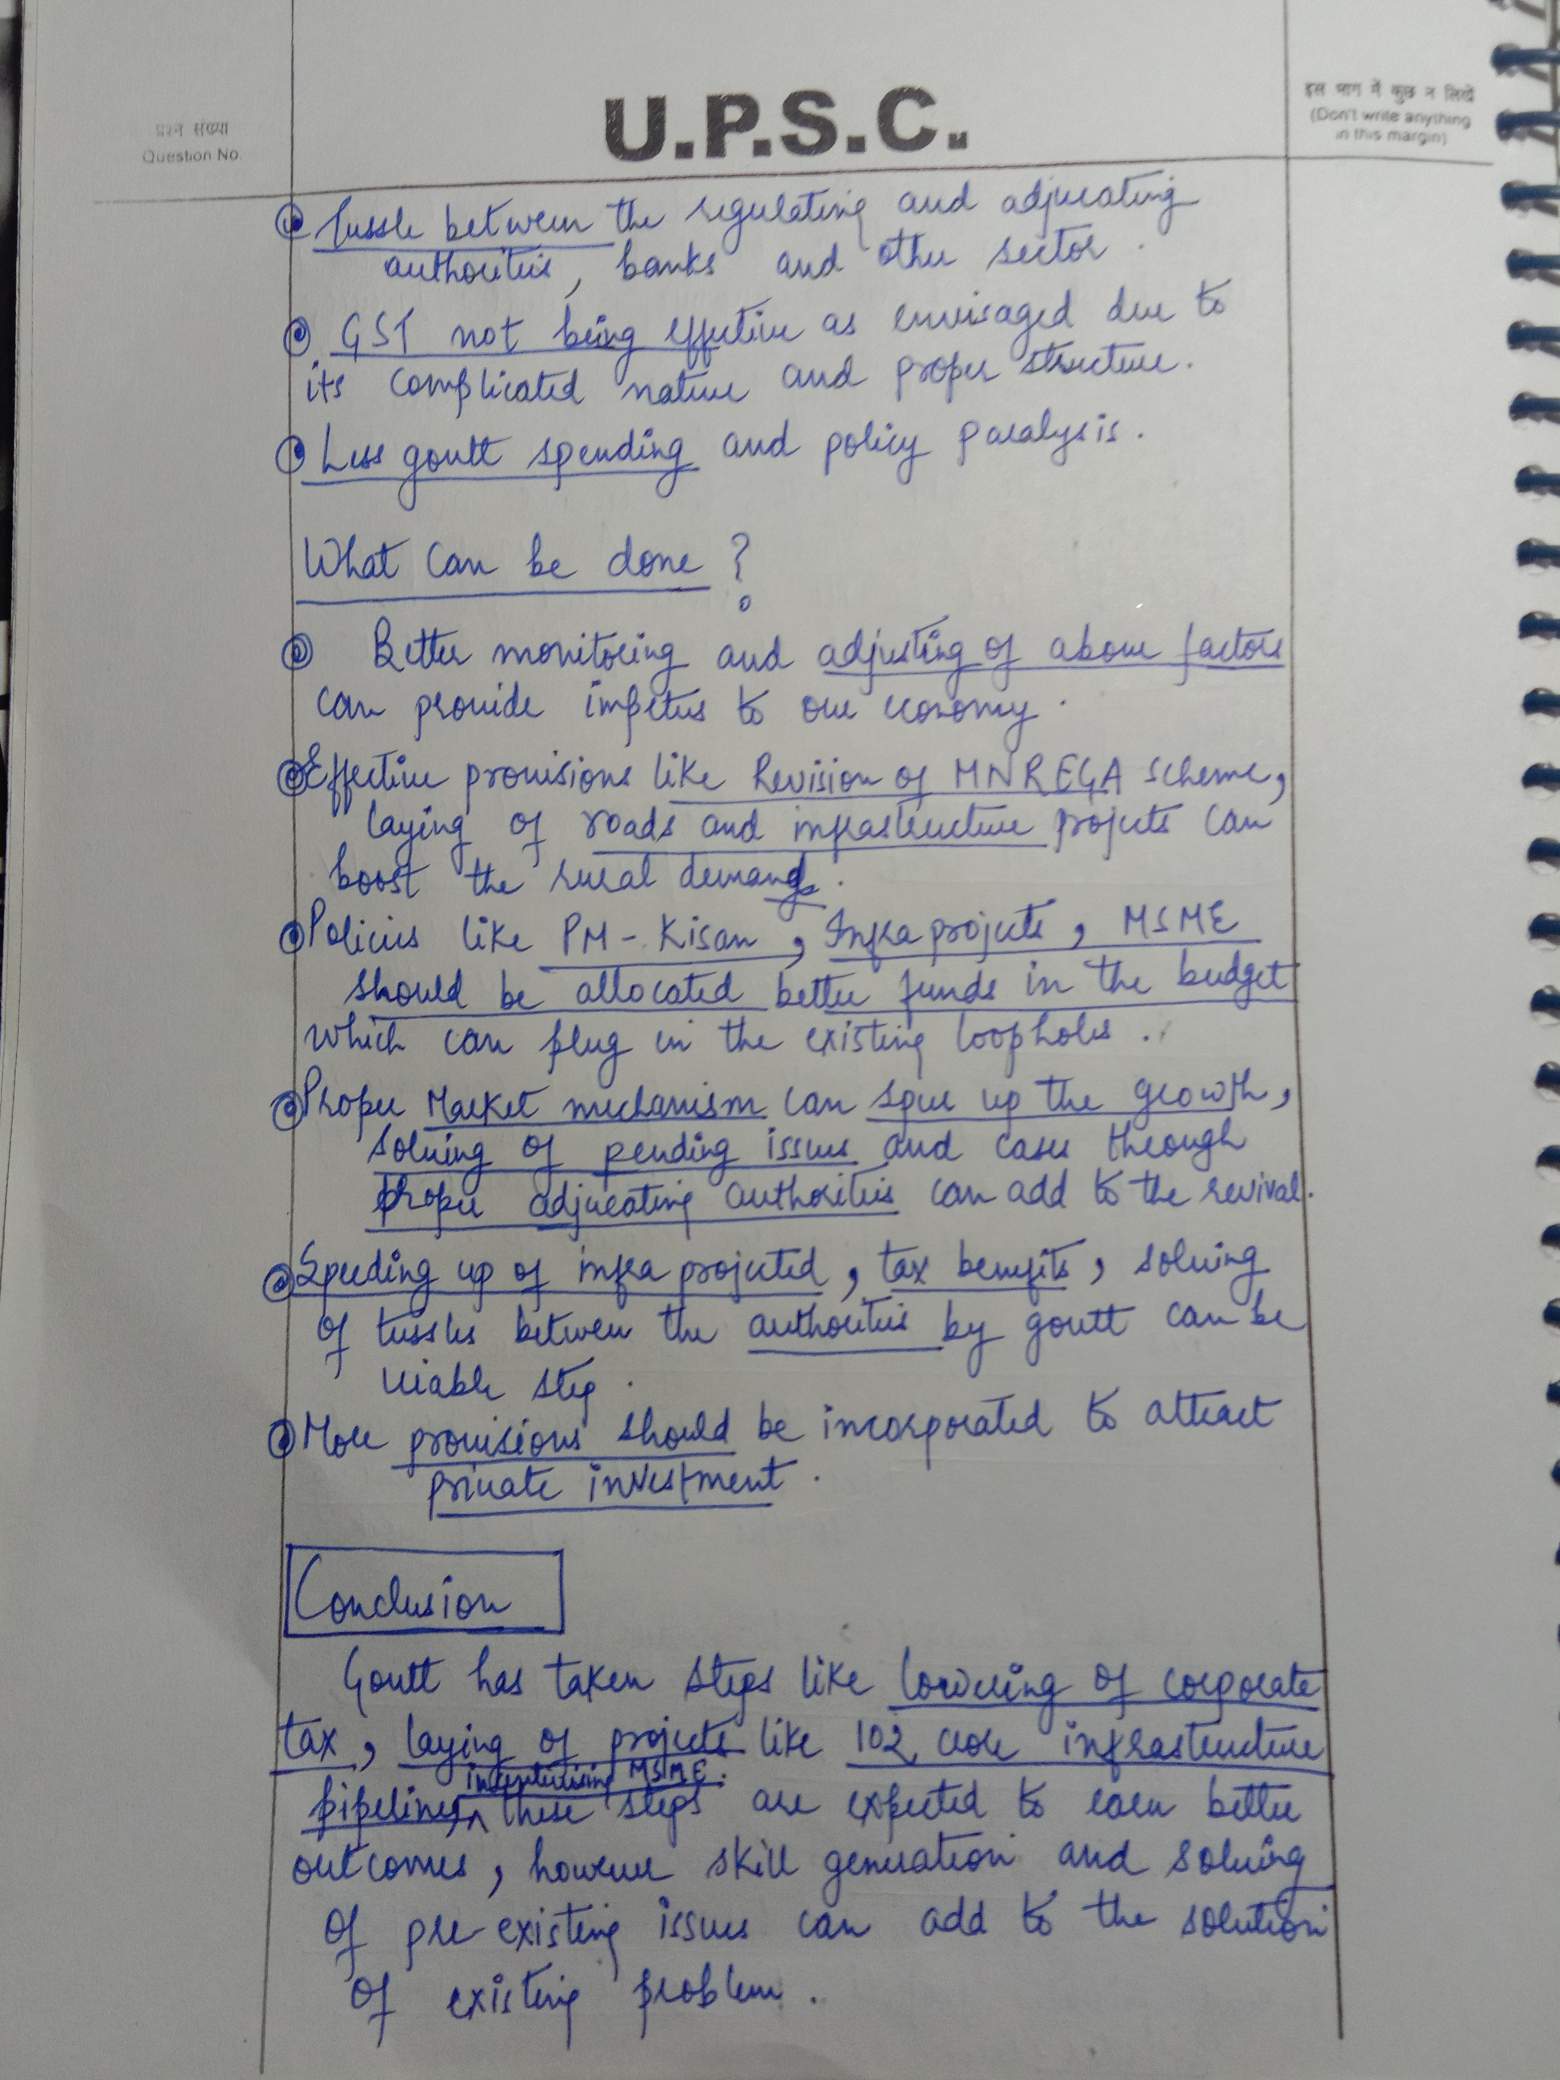 प्रश्न संख्या
Question No.
U.P.S.C.
इस भाग में कुछ न लिखें
(Don't write anything
in this margin)
Tussle between the regulating and adjucating
authorities, banks and other sector.
GST not being effective as envisaged due to
its complicated nature and proper structure.
Less govtt spending and policy paralysis.
What can be done ?
Better monitoring and adjusting of above factors
can provide impetus to our economy.
Effective provisions like Revision of MNREGA scheme,
laying of roads and infrastructure projects can
boost the rural demand.
Policies like PM-Kisan, Infra projects, MSME
should be allocated better funds in the budget
which can plug in the existing loopholes.
Proper Market mechanism can spur up the growth,
solving of pending issues and cases through
proper adjucating authorities can add to the revival.
Speeding up of infra projected, tax benefits, solving
of tussles between the authorities by govtt can be
viable step.
More provisions should be incorporated to attract
private investment.
Conclusion
Govtt has taken steps like lowering of corporate
tax, laying of projects like 102 crore infrastructure
incentivising MSME.
pipeline, these steps are expected to earn better
outcomes, however skill generation and solving
of pre-existing issues can add to the solution
of existing problem.